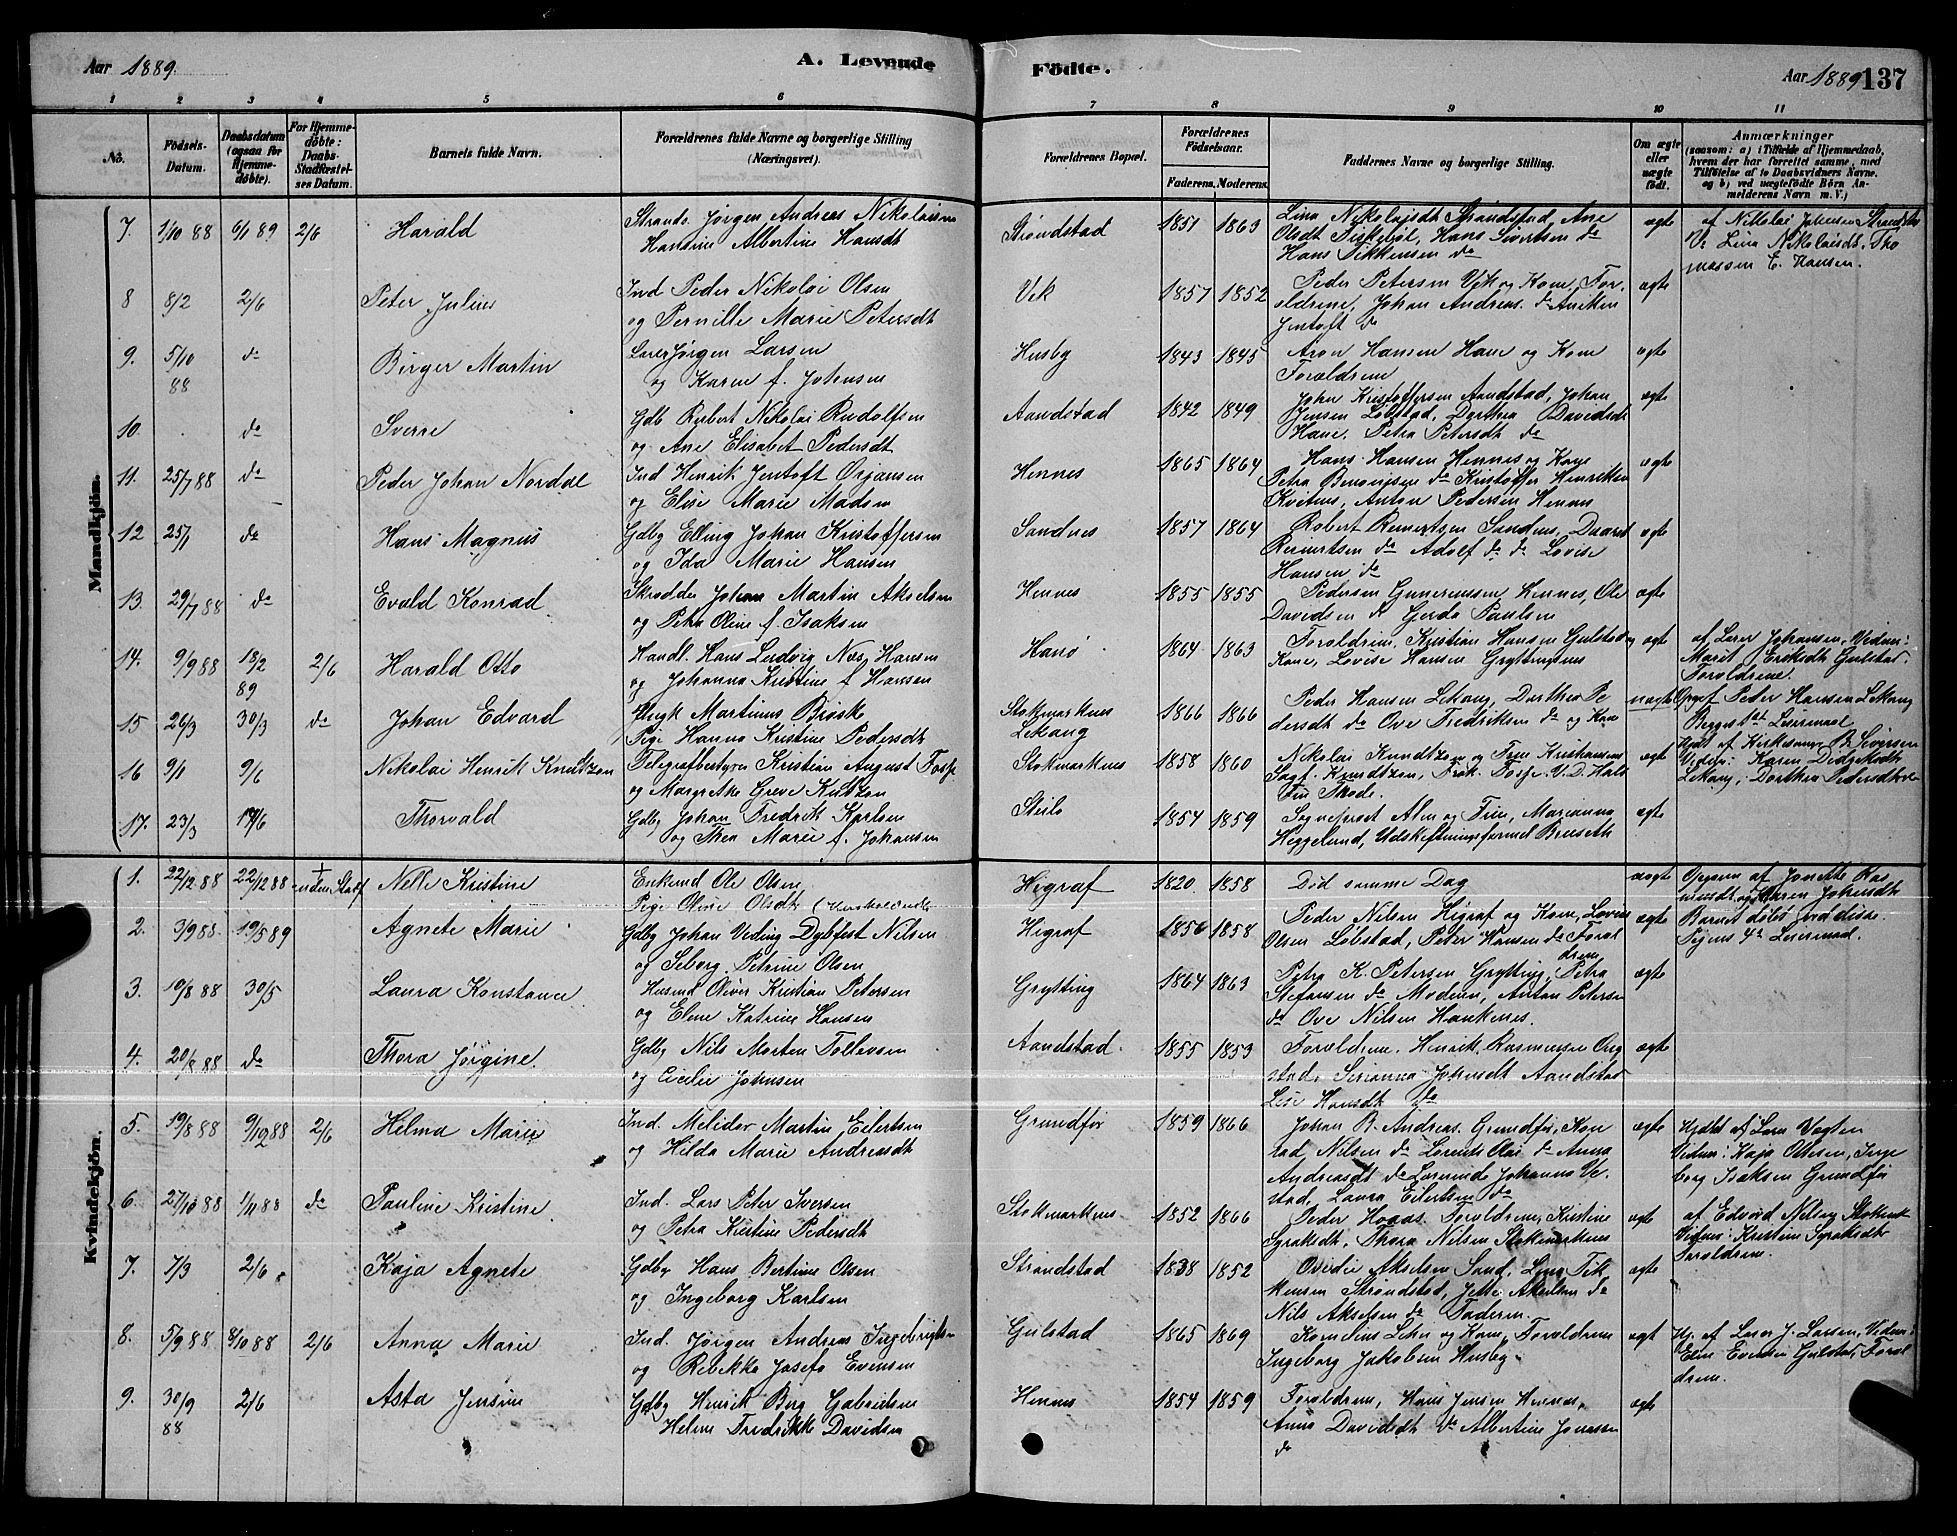 Aar 1889.
A. Levende
Födte.
Aar 1889
137
1 2 3 4 5 6 7 8 9 10 11
No.
Födsels-
Datum.
Daabsdatum
(ogsaa for
Hjemme-
döbte).
For Hjemme-
döbte:
Daabs-
Stadfæstel-
ses Datum.
Barnets fulde Navn.
Forældrenes fulde Navne og borgerlige Stilling
(Næringsvei).
Forældrenes Bopæl.
Forældrenes
Födselsaar.
Faderens. Moderens.
Faddernes Navne og borgerlige Stilling.
Om ægte
eller
uægte
födt.
Anmærkninger
(saasom: a) i Tilfælde af Hjemmedaab,
hvem der har forrettet samme, med
Tilföielse af to Daabsvidners Navne.
og b) ved uægtefödte Börn An-
melderens Navn m. V.)
Mandkjön.
7. 1/10 88 6/1 89 2/6 Harald
Strands. Jørgen Andreas Nikolaisen
Hansine Albertine Hansdt
Strøndstad 1851 1863
Lina Nikolaisdt Strøndstad, Ane
Olsdt Fiskebøl, Hans Sivertsen do
Hans Fikkensen do
ægte
af Nikolai Johnsen Strøndstad
V: Lina Nikolaisdt. Tho
massen E. Hansen.
8 8/2 2/6 Peter Julius
Ind Peder Nikolai Olsen
og Pernille Marie Petersdt
Vik 1857 1852
Peder Petersen Vik og Kone, For-
ældrene, Johan Andreas. do Aniken
Jentoft do
ægte
9. 5/10 88 do Birger Martin
Jørgen Larsen
og Karen f. Johnsen
Husby 1843 1845
Aron Hansen Hane og Kone
Forældrene
ægte
10. do Sverre
Gdb Robert Nikolai Rudolfsen
og Ane Elisabet Pedersdt
Aandstad 1842 1849
John Kristoffersen Aandstad, Johan
Jensen Løbstad, Dorthea Davidsdt
Hane. Petra Petersdt do
ægte
11. 25/7 88 do Peder Johan Nordal
Ind Henrik Jentoft Osjansen
og Elise Marie Madsen
Hennes 1865 1864
Hans Hansen Hennes og Kone
Petra Benonisen do Kristoffer Henriksen
Kvitnes, Anton Pedersen Hennes
ægte
12 25/1 do Hans Magnus
Gdbg Elling Johan Kristoffersen
og Ida Marie Hansen
Sandnes 1857 1864
Robert Reinertsen Sandnes, Daaret
Reinertsen do Adolf do do Lovise
Hansen do
ægte
13. 29/7 88 do Evald Konrad
Skrædder Johan Martin Akselsen
og Petra Oline f. Isaksen
Hennes 1855 1855
Pedersen Hennes, Ole
Davidsen do Gerda Paulsen
ægte
14. 9/9 88 18/2 89 2/6 Harald Otto
Handl. Hans Ludvig Næs Hansen
og Johanna Kristine f Hansen
Hanø 1864 1863
Forældrene, Kristian Hansen Gulstad og
Kone, Lovise Hansen Gryttingnes
ægte
af Lærer Johansen, Vidner:
Marit Eriksdt Gulstad.
Forældrene.
15 26/3 30/3 do Johan Edvard
Ungk Martinus Brøske
Pige Hanna Kristine Pedersdt
Stokmarknes
Lekang
1866 1866
Peder Hansen Lekang, Dorthea Pe
dersdt do Ove Fredriksen do og Kone
uægte
Opg af Peder Hansen Lekang
Begges 1ste Leiermaal
16 9/1 9/6 Nikolai Henrik Knutzon
Telegrafbestyrer Kristian August Fosse
og Margrethe Greve Knutzon
Stokmarknes 1858 1860
Nikolai Knudtzon og Frue Kristiansund
Sagf. Knudtzon, Frøk. Fosse. V. D. Hals
Fru Skode.
ægte
Hjdt af Kirkesanger B. Siversen
Vidner: Karen Didriksdt
Lekang, Dorthea Pedersdt do
17. 23/3 19/6 Thorvald
Gdbg Johan Fredrik Karlsen
og Thea Marie f. Johansen
Steilo 1854 1859
Sogneprest Alm og Frue, Marianna
Heggelund, Udskiftningsformd Brueseth
ægte
Kvindekjön.
1. 22/12 88 22/12 88 + uden Stadf Nelle Kristine
Enkemd Ole Olsen
Pige Oline Olsdt (Huusholderske
Higraf 1820. 1858
Død samme Dag
uægte
Opgivn af Jonette Ras
musdt og Karen Johnsdt
Barnet døbt ved disse.
Pigens 4de Leiermaal.
2. 3/9 88 19/5 89 Agnete Marie
Gdbg Johan Veding Dybfest Nilsen
og Seborg Petrine Olsen
Higraf 1856 1858
Peder Nilsen Higraf og Kone, Lovise
Olsen Løbstad, Peter Hansen do Foræl
drene
ægte
3. 19/8 88 30/5 Laura Konstance
Husmd Oliver Kristian Petersen
og Elene Katrine Hansen
Grytting 1864 1863
Petra K. Petersen Grytting, Petra
Stefansen do Moderen, Anton Petersen
do Ove Nilsen Haukenes.
ægte
4. 20/8 88 do Thora Jørgine.
Gdbg Nils Morten Tollevsen
og Cecilie Johnsen
Aandstad. 1855 1853
Forældrene. Henrik Rasmussen Ong
stad, Serianna Johnsdt Aandstad
Lise Hansdt do
ægte
5. 19/8 88 9/12 88 2/6 Helma Marie
Ind. Melidor Martin Eilertsen
og Hilda Marie Andreasdt
Grundfør 1859 1866
Johan B. Andreas. Grundfør, Kon
rad Nilsen do Lorents Olai do Anna
Andreasdt do Lorense Johanna Ve-
stad, Laura Eilertsen do
ægte
Hjdbt af Lars Vogten
Vidner: Kaja Ottesen, Inge
borg Isaksen Grundfør
6. 27/10 88 1/11 88 do Pauline Kristine.
Ind. Lars Peter Iversen
og Petra Kristine Pedersdt
Stokmarknes 1852 1866
Peder Hoaas. Forældrene, Kristine
Syraksdt, Thora Nilsen Stokmarknes
ægte
af Edvard Nilsen Stokmk
Vidner: Kristine Syraksdt
Forældrene.
7. 7/3 2/6 Kaja Agnete
Gdbr Hans Bertinus Olsen
og Ingeborg Karlsen
Strøndstad 1838 1852
Ovidie Akselsen Sand, Lina Fik
kensen Strøndstad, Jette Akselsen do
Nils Akselsen do Faderen.
ægte
8. 5/9 88 8/10 88 2/6 Anna Marie
Ind. Jørgen Andreas Ingebrigtsen
og Rebekka Josefa Evensen
Gulstad 1865 1869
Kornelius Lehn og Kone, Forældrene
Ingeborg Jakobsen Husby.
ægt
Hj. af Lærer J. Larsen, Vidner:
Eline Evensen Gulstad, Foræl
drene.
9. 30/9 88 2/6 Asta Jensine
Gdbg Henrik Berg Gabrielsen
og Helene Fredrikke Davidsen
Hennes 1854 1859
Forældrene, Hans Jensen Hennes,
Anna Davidsdt do Albertine Jonassen
do
ægte